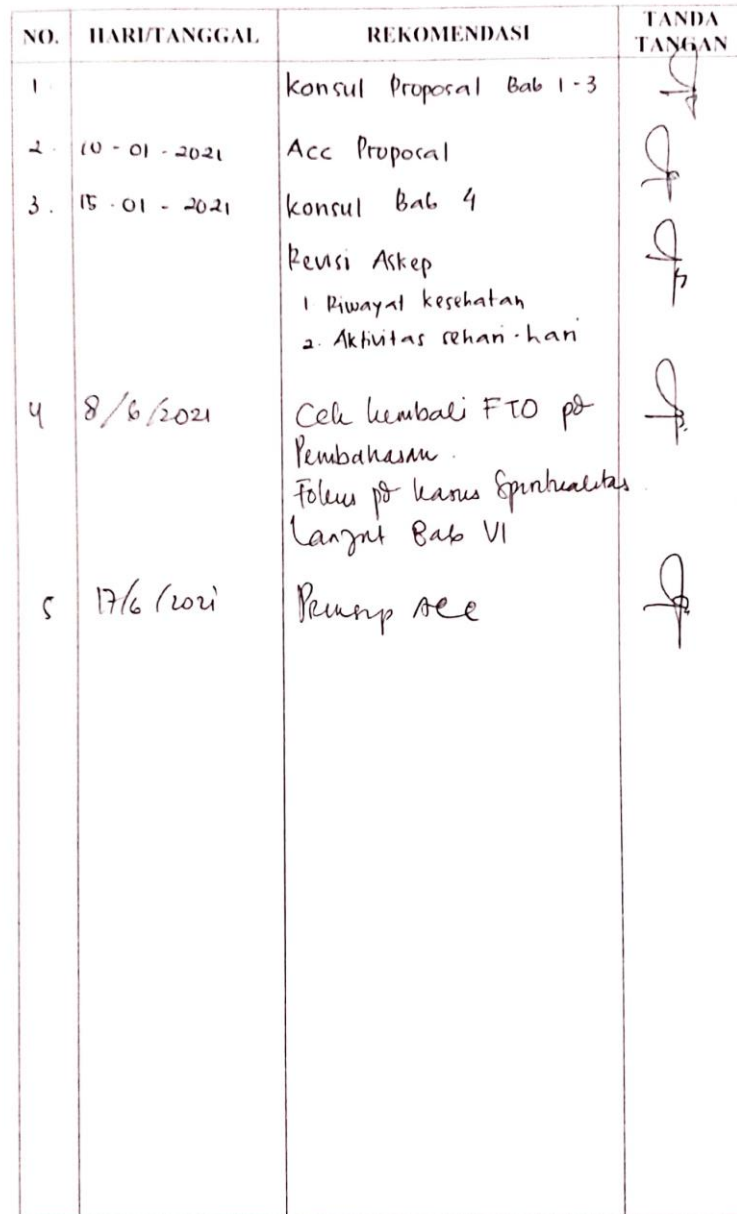 NO. HARI/TANGGAL REKOMENDASI TANDA TANGAN
1. Konsul Proposal Bab 1-3
2. 10-01-2021 Acc Proposal
3. 15-01-2021 Konsul Bab 4
Revisi Askep
1 Riwayat kesehatan
2. Aktivitas sehari-hari
4 8/6/2021 Cek kembali FTO pd
Pembahasan.
Fokus pd kasus Spiritualitas.
Lanjut Bab VI
5 17/6/2021 Prinsip Acc